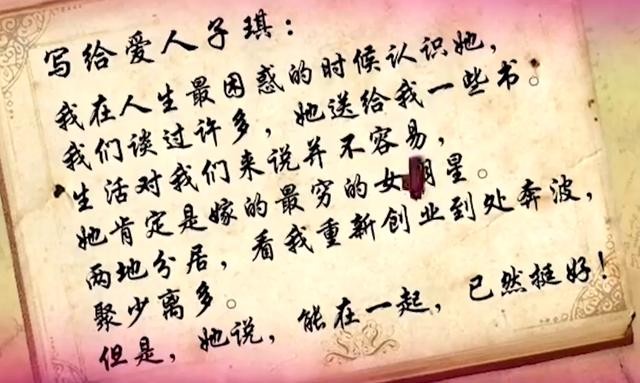 写给爱人子琪：
我在人生最困惑的时候认识她，
我们谈过许多，她送给我一些书。
生活对我们来说并不容易，
她肯定是嫁的最穷的女明星。
两地分居，看我重新创业到处奔波，
聚少离多。
但是，她说，能在一起，已然挺好！